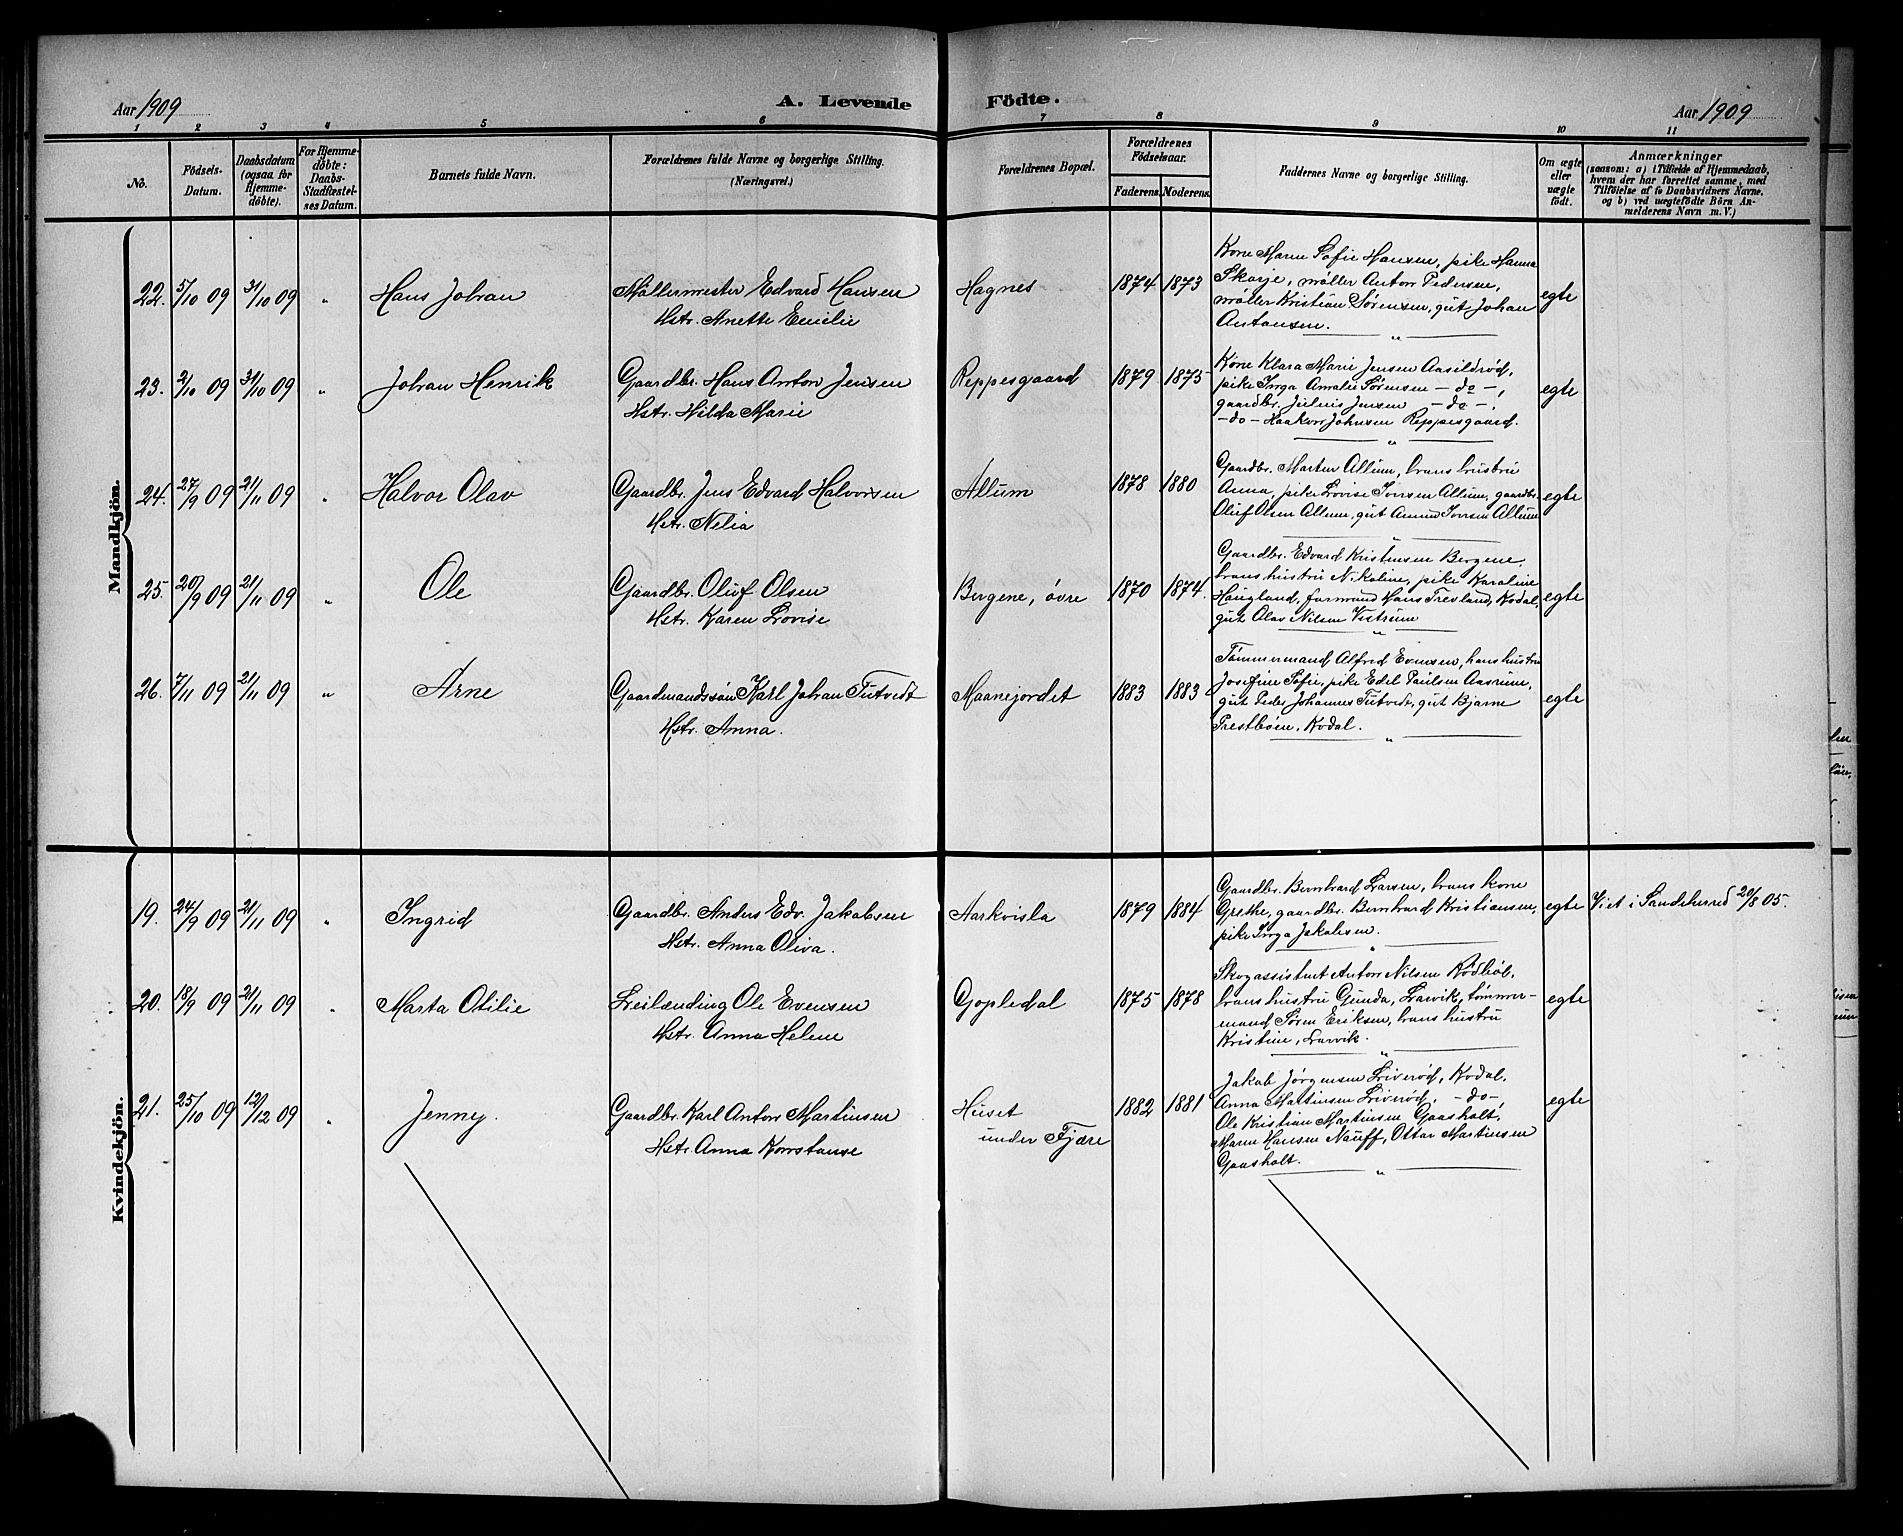 Aar 1909
A. Levende Födte.
Aar 1909
1 2 3 4 5 6 7 8 9 10 11
No.
Födsels-Datum.
Daabsdatum (ogsaa for Hjemme-döbte).
For Hjemme-döbte: Daabs-Stadfæstel-ses Datum.
Barnets fulde Navn.
Forældrenes fulde Navne og borgerlige Stilling. (Næringsvei.)
Forældrenes Bopæl.
Forældrenes Födselsaar.
Faderens. Moderens.
Faddernes Navne og borgerlige Stilling.
Om ægte eller uægte født.
Anmærkninger
(saasom: a) i Tilfælde af Hjemmedaab,
hvem der har forrettet samme, med
Tilföielse af to Daabsvidners Navne,
og b) ved uægtefödte Börn An-
melderens Navn m. V.)
Mandkjön.
22. 5/10 09 31/10 09 " Hans Johan
Møllermester Edvard Hansen
Hstr. Anette Emilie
Hagnes 1874 1873
Kone Maren Sofie Hansen, pike Hanna
Skorje, møller Anton Pedersen,
møller Kristian Sørensen, gut Johan
Antonsen.
egte
23. 2/10 09 31/10 09 " Johan Henrik
Gaardbr. Hans Anton Jensen
Hstr. Hilda Marie
Reppesgaard 1879 1875
Kone Klara Marie Jensen Aasildrød,
pike Inga Amalie Sørensen - do -,
gaardbr. Julius Jensen - do -,
- do - Haakon Johnsen Reppesgaard.
egte
24. 27/9 09 21/11 09 " Halvor Olav
Gaardbr. Jens Edvard Halvorsen
Hstr. Nelia
Allum 1878 1880
Gaardbr. Martin Allum, hans hustru
Anna, pike Lovise Iversen Allum, gaardbr.
Oluf Olsen Allum, gut Iversen Allum
egte
25. 20/9 09 21/11 09 " Ole
Gaardbr. Oluf Olsen
Hstr. Karen Lovise
Bergene, øvre 1870 1874.
Gaardbr. Edvard Kristensen Bergene,
hans hustru Nikoline, pike Karoline
Haugland, formand Hans Trevland, Kodal,
gut Olav Nilsen Vestrum
egte
26. 7/11 09 21/11 09 " Arne
Gaardmandssøn Karl Johan Tutvedt
Hstr. Anna.
Maanejordet 1883 1883
Tømmermand Alfred Evensen, hans hustru
Josefine Sofie, pike Edel Paulsen Aasrum,
gut Peder Johannes Tutvedt, gut Bjarne
Prestbøen, Kodal.
egte
Kvindekjön.
19. 24/9 09 21/11 09 " Ingrid
Gaardbr. Anders Edv. Jakobsen
Hstr. Anna Oliva.
Aarkvisla 1879 1884
Gaardbr. Bernhard Larsen, hans kone
Grethe, gaardbr. Bernhard Kristiansen,
pike Inga Jakobsen.
egte
Viet i Sandeherred 20/8 05.
20. 18/9 09 21/11 09 " Marta Otilie
Leilænding Ole Evensen
Hstr. Anna Helene
Gopledal 1875 1878
Skogassistent Anton Nilsen Rødbøl,
hans hustru Gunda, Larvik, tømmer-
mand Søren Eriksen, hans hustru
Kristine, Larvik.
egte
21. 25/10 09 12/12 09 " Jenny.
Gaardbr. Karl Anton Martinsen
Hstr. Anna Konstanse
Huset
under Fjære
1882 1881
Jakob Jørgensen Liverød, Kodal,
Anna Martinsen Liverød, - do -,
Ole Kristian Martinsen Gaasholt,
Maren Hansen Nauff, Ottar Martinsen
Gaasholt.
egte